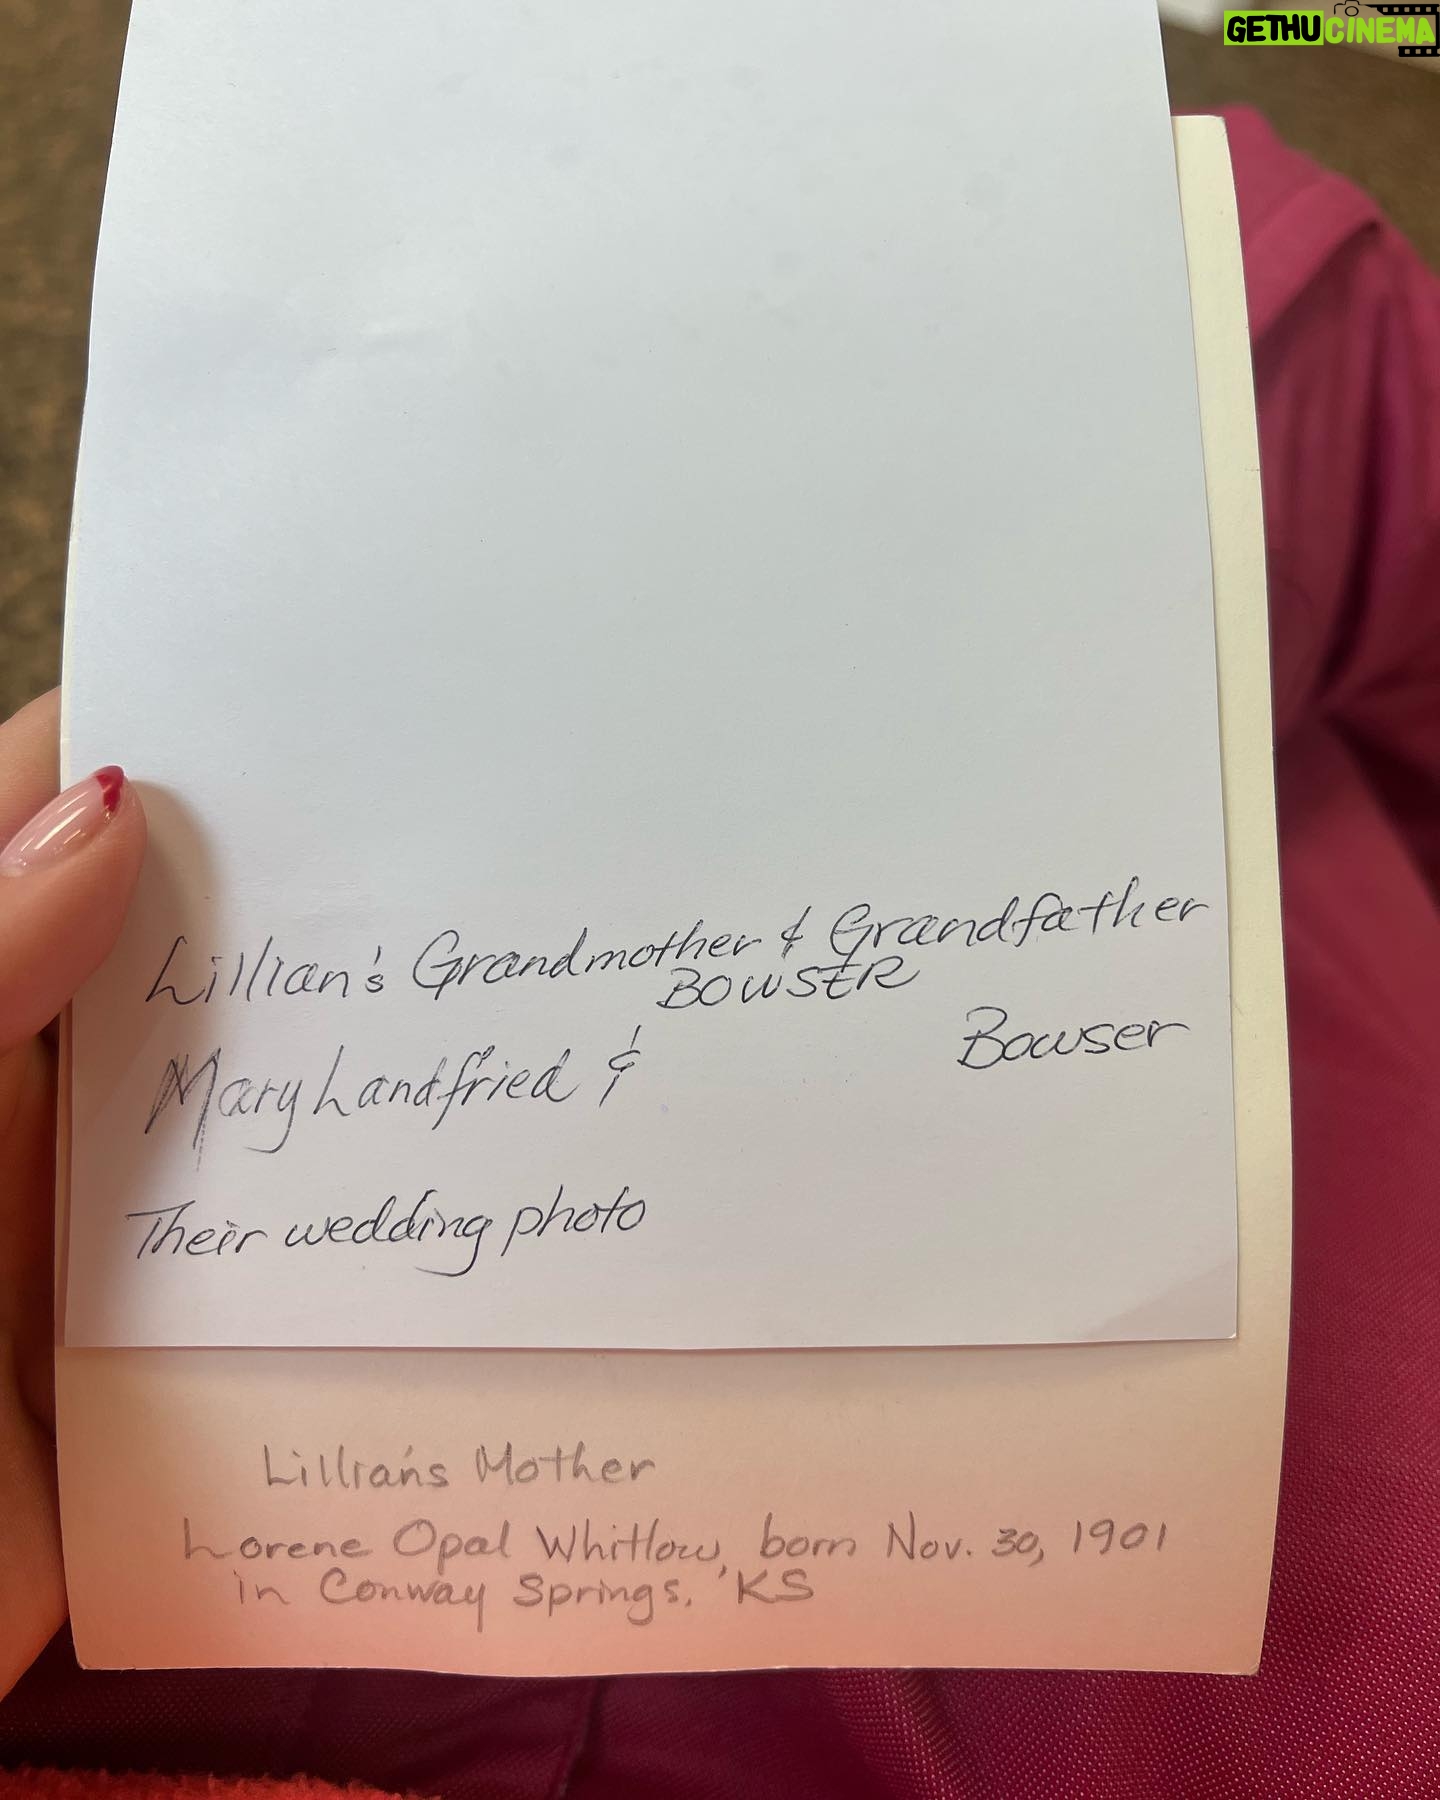 GETHUCINEMA
Lillian's Grandmother & Grandfather
BOWSER
Mary Landfried & Bowser
Their wedding photo
Lillian's Mother
Lorene Opal Whitlow, born Nov. 30, 1901
in Conway Springs, KS